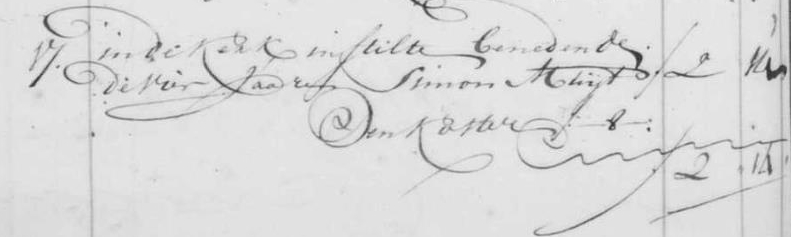 17. in de kerk in stilte beneden de
de vier Jaaren Simon Mlijt / 2 14
Den koster / 8:
2 14